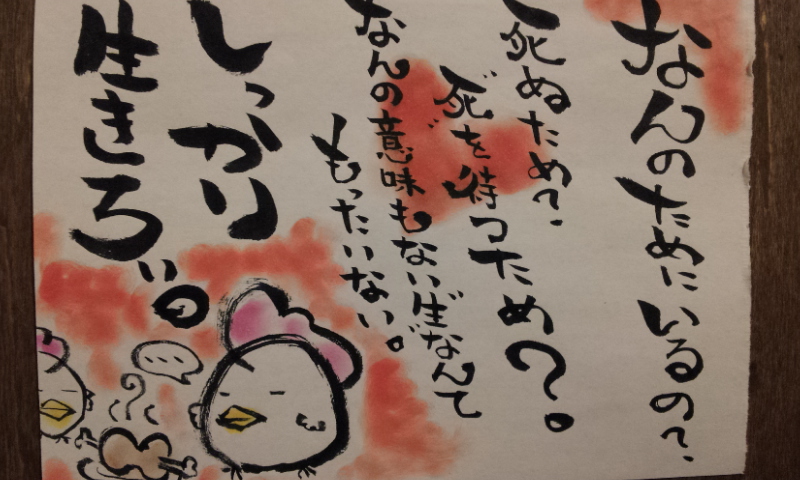 なんのためにいるの?
死ぬため?
死を待つため?。
なんの意味もない生なんて
もったいない。
しっかり
生きろ!!。
...